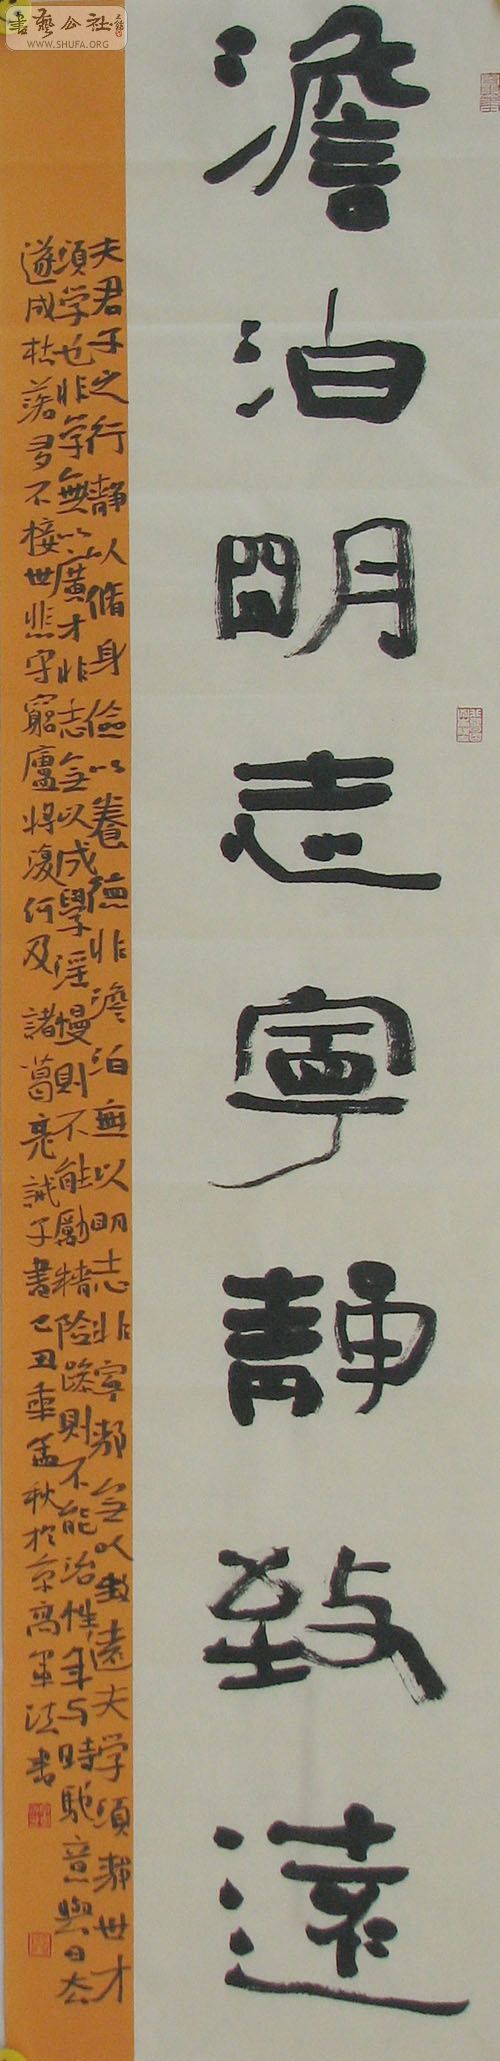 書藝公社
WWW.SHUFA.ORG
澹泊明志寧靜致遠
夫君子之行靜以脩身儉以養德非澹泊無以明志非寧靜無以致遠夫学須靜世才
須学也非学無以廣才非志無以成學淫慢則不能勵精险躁則不能治性年与時馳意與日去
遂成枯落多不接世悲守窮廬将復何及 諸葛亮誡子書 己丑年孟秋於京 高军法书